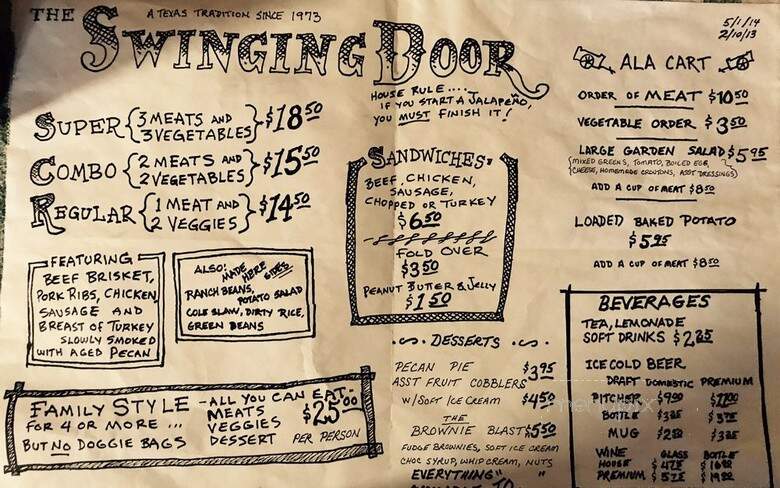 THE
A TEXAS TRADITION SINCE 1973
SWINGING DOOR
5/1/14
2/10/13
HOUSE RULE....
IF YOU START A JALAPEÑO,
YOU MUST FINISH IT!
SUPER {3 MEATS AND 3 VEGETABLES} $18.50
COMBO {2 MEATS AND 2 VEGETABLES} $15.50
REGULAR {1 MEAT AND 2 VEGGIES} $14.50
FEATURING
BEEF BRISKET,
PORK RIBS, CHICKEN
SAUSAGE AND
BREAST OF TURKEY
SLOWLY SMOKED
WITH AGED PECAN
ALSO: MADE HERE SIDES
RANCH BEANS,
POTATO SALAD
COLE SLAW, DIRTY RICE,
GREEN BEANS
FAMILY STYLE - ALL YOU CAN EAT-
FOR 4 OR MORE ...
BUT NO DOGGIE BAGS
MEATS
VEGGIES
DESSERT
$25.00
PER PERSON
SANDWICHES
BEEF, CHICKEN,
SAUSAGE,
CHOPPED OR TURKEY
$6.50
FOLD OVER
$3.50
PEANUT BUTTER & JELLY
$1.50
DESSERTS
PECAN PIE
ASST FRUIT COBBLERS $3.95
W/SOFT ICE CREAM $4.50
THE
BROWNIE BLAST $5.50
FUDGE BROWNIES, SOFT ICE CREAM
CHOC SYRUP, WHIP CREAM, NUTS
EVERYTHING"
ALA CART
ORDER OF MEAT $10.50
VEGETABLE ORDER $3.50
LARGE GARDEN SALAD $5.95
(MIXED GREENS, TOMATO, BOILED EGG,
CHEESE, HOMEMADE CROUTONS, ASST DRESSINGS)
ADD A CUP OF MEAT $8.50
LOADED BAKED POTATO
$5.95
ADD A CUP OF MEAT $8.50
BEVERAGES
TEA, LEMONADE
SOFT DRINKS $2.25
ICE COLD BEER
DRAFT DOMESTIC PREMIUM
PITCHER $9.00
BOTTLE
MUG
WINE GLASS BOTTLE
HOUSE
PREMIUM